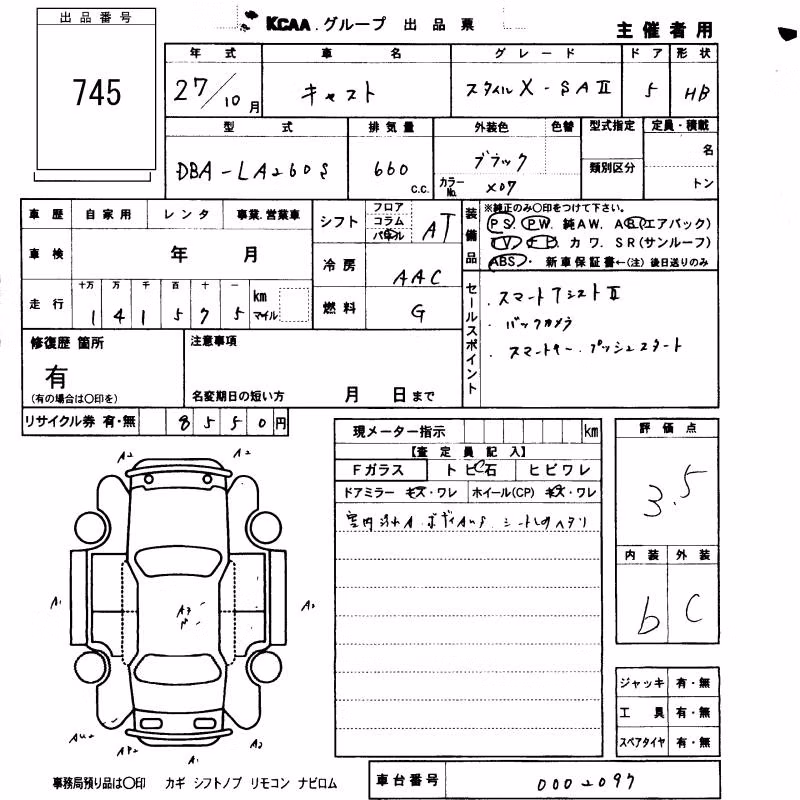 出品番号
745
KCAA グループ 出品票
主催者用
年式 車名 グレード ドア 形状
27/10月 キャスト スタイルX-SAⅡ 5 HB
型式 排気量 外装色 色替 型式指定 定員・積載
DBA-LA260S 660 c.c. ブラック
名
類別区分
カラーNo. X07 トン
車歴 自家用 レンタ 事業.営業車
シフト フロア コラム パネル AT
装備品
※純正のみ○印をつけて下さい。
PS. PW. 純AW. AB(エアバック)
TV. ナビ. カワ. SR(サンルーフ)
ABS. 新車保証書←(注)後日送りのみ
車検 年 月
冷房 AAC
走行 十万 万 千 百 十 一 km マイル
1 4 1 5 7 5
燃料 G
セールスポイント
・スマートアシストⅡ
・バックカメラ
・スマートキー.プッシュスタート
修復歴 箇所
有
(有の場合は○印を)
注意事項
名変期日の短い方 月 日まで
リサイクル券 有・無 8 5 5 0 円
現メーター指示 km
【査定員記入】
Fガラス トビ石 ヒビワレ
ドアミラー キズ・ワレ ホイール(CP) キズ・ワレ
評価点
3.5
内装 外装
b C
A2 A2
A1 A2
A3
AU2 AP2 A1 A2
ジャッキ 有・無
工具 有・無
スペアタイヤ 有・無
事務局預り品は○印 カギ シフトノブ リモコン ナビロム
車台番号 0002097